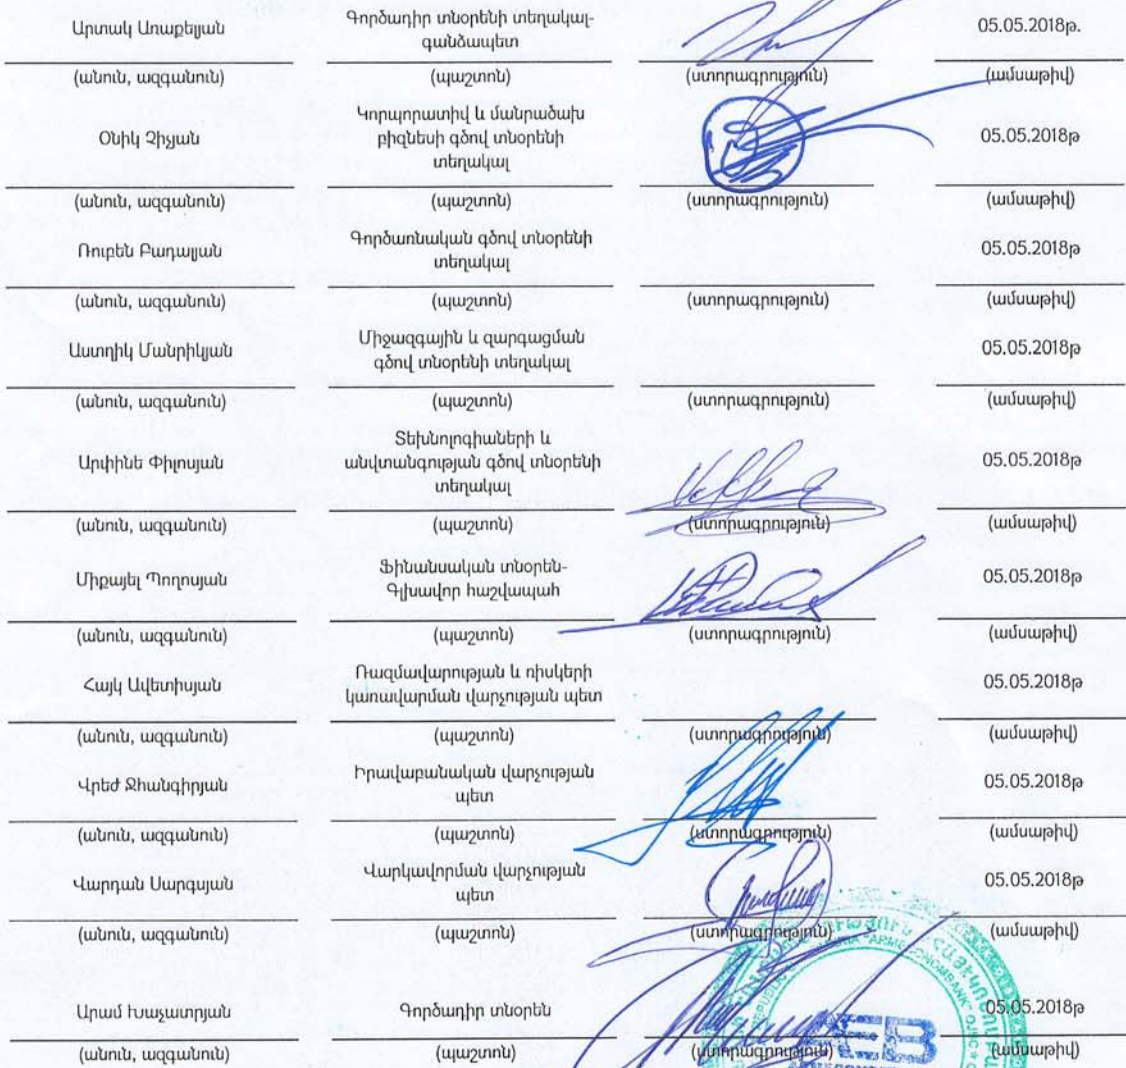 Արտակ Առաքելյան
Գործադիր տնօրենի տեղակալ-
գանձապետ
05.05.2018թ.
(անուն, ազգանուն) (պաշտոն) (ստորագրություն) (ամսաթիվ)
Օնիկ Չիչյան
Կորպորատիվ և մանրածախ
բիզնեսի գծով տնօրենի
տեղակալ
05.05.2018թ
(անուն, ազգանուն) (պաշտոն) (ստորագրություն) (ամսաթիվ)
Ռուբեն Բադալյան
Գործառնական գծով տնօրենի
տեղակալ
05.05.2018թ
(անուն, ազգանուն) (պաշտոն) (ստորագրություն) (ամսաթիվ)
Աստղիկ Մանրիկյան
Միջազգային և զարգացման
գծով տնօրենի տեղակալ
05.05.2018թ
(անուն, ազգանուն) (պաշտոն) (ստորագրություն) (ամսաթիվ)
Արփինե Փիլոսյան
Տեխնոլոգիաների և
անվտանգության գծով տնօրենի
տեղակալ
05.05.2018թ
(անուն, ազգանուն) (պաշտոն) (ստորագրություն) (ամսաթիվ)
Միքայել Պողոսյան
Ֆինանսական տնօրեն-
Գլխավոր հաշվապահ
05.05.2018թ
(անուն, ազգանուն) (պաշտոն) (ստորագրություն) (ամսաթիվ)
Հայկ Ավետիսյան
Ռազմավարության և ռիսկերի
կառավարման վարչության պետ
05.05.2018թ
(անուն, ազգանուն) (պաշտոն) (ստորագրություն) (ամսաթիվ)
Վրեժ Ջհանգիրյան
Իրավաբանական վարչության
պետ
05.05.2018թ
(անուն, ազգանուն) (պաշտոն) (ստորագրություն) (ամսաթիվ)
Վարդան Սարգսյան
Վարկավորման վարչության
պետ
05.05.2018թ
(անուն, ազգանուն) (պաշտոն) (ստորագրություն) (ամսաթիվ)
Արամ Խաչատրյան
Գործադիր տնօրեն
05.05.2018թ
(անուն, ազգանուն) (պաշտոն) (ստորագրություն) (ամսաթիվ)
AEB